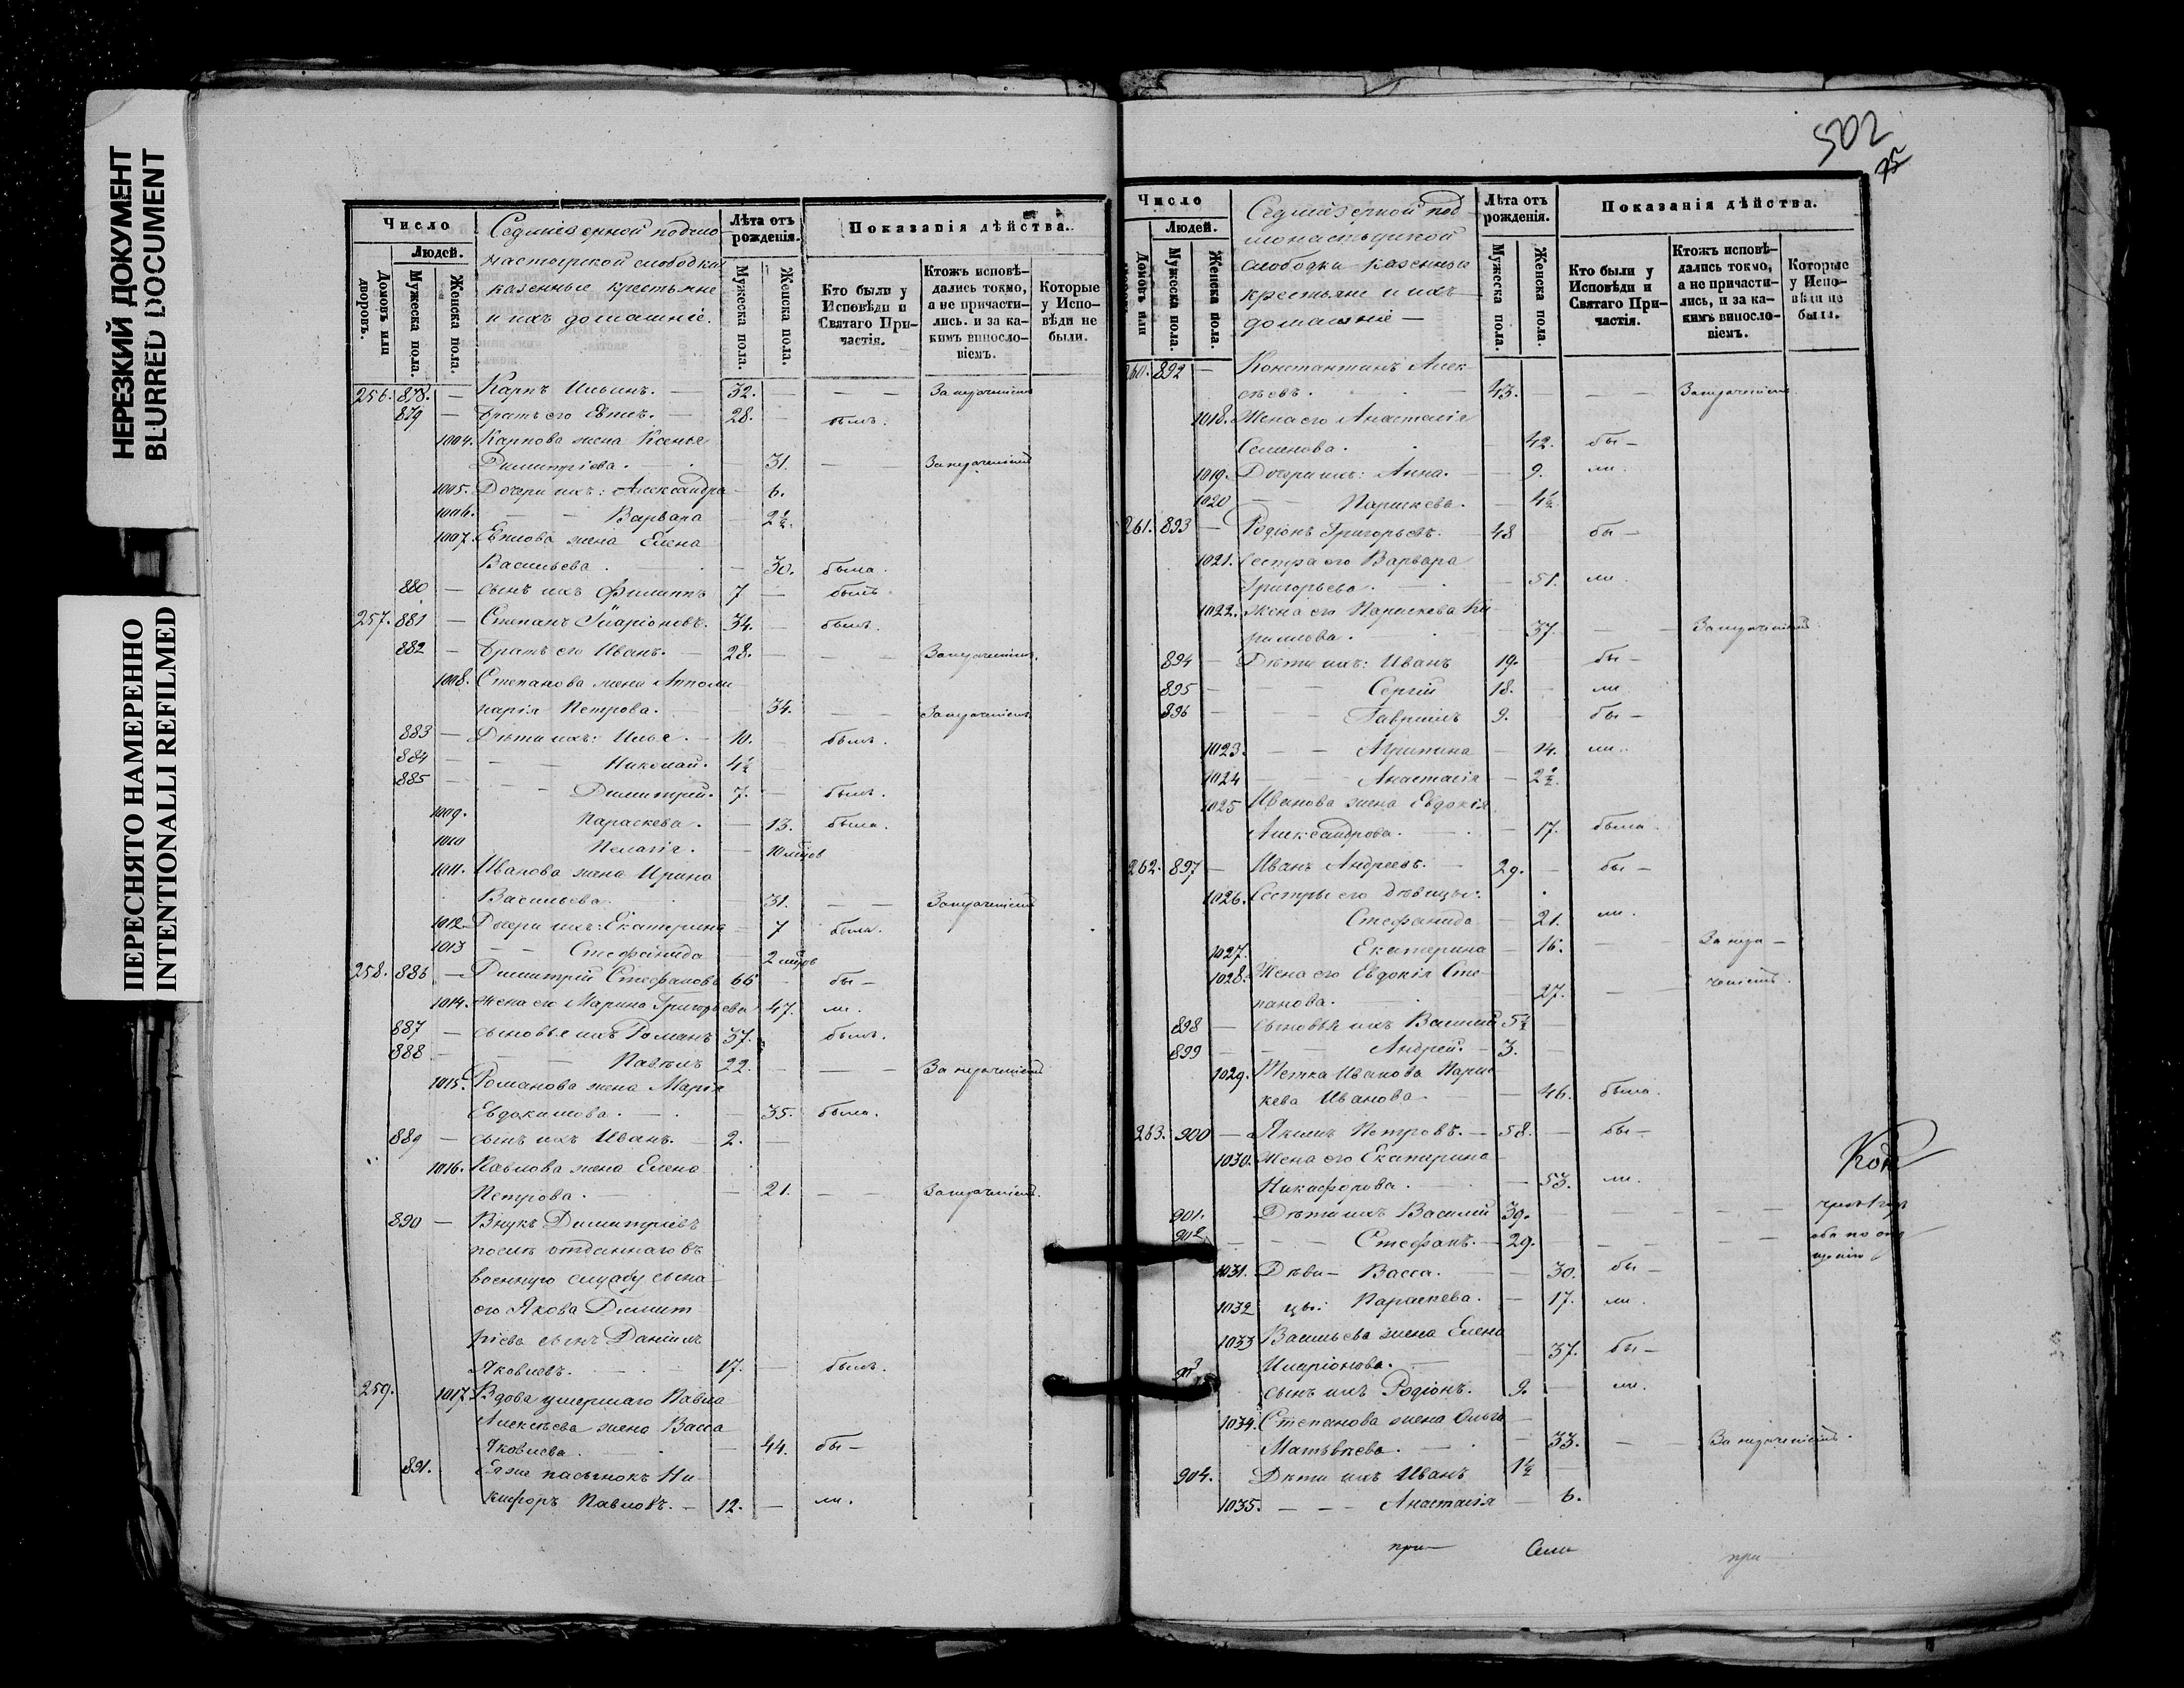 НЕРЕЗКИЙ ДОКУМЕНТ
BLURRED DOCUMENT
ПЕРЕСНЯТО НАМЕРЕННО
INTENTIONALLI REFILMED
Число
Людей.
Домовъ или дворовъ.
Мужеска пола.
Женска пола.
Седміезерной подмо-
настырской слободки
казенные крестьяне
и ихъ домашніе.
Лѣта отъ
рожденія.
Мужеска пола.
Женска пола.
Показанія дѣйства.
Кто были у
Исповѣди и
Святаго При-
частія.
Ктожъ исповѣ-
дались токмо,
а не причасти-
лись. и за ка-
кимъ виносло-
віемъ.
Которые
у Испо-
вѣди не
были.
256. 878. — Карпъ Ильинъ. — 32. — — —
879 — Братъ его 28. — былъ.
1004. Карпова жена Ксенья
Димитріева. — 31. — —
1005. Дочери ихъ: Александра — 6.
1006. — — Варвара — 2½.
1007. жена Елена
Васильева. — 30. была.
880 — сынъ ихъ Филиппъ 7 — былъ.
257. 881 — Степанъ Иларіоновъ. 34. — былъ.
882 — Братъ его Иванъ. — 28. — — —
1008. Степанова жена Аполи-
нарія Петрова. — 34. — —
883 — Дѣти ихъ: Илья. — 10. — былъ.
884 — — Николай. 4½
885 — — Димитрій. 7. — былъ.
1009. Параскева. — 13. была.
1010 Пелагія. — 10 мѣсцов
1011. Иванова жена Ирина
Васильева. — 31. — —
1012. Дочери ихъ: Екатерина — 7 была.
1013 — — Стефанида — 2
258. 886 — Димитрій Стефановъ 66 — бы—
1014. Жена его Марина Григорьева 47. ли.
887 — сыновья ихъ Романъ 37. былъ.
888 — Павелъ 22. — — —
1015. Романова жена Марія
Евдокимова. — 35. была.
889 — сынъ ихъ Иванъ. — 2. —
1016. Павлова жена Елена
Петрова. — 21. — —
890 — Внукъ Димитріевъ
отданнаго въ
военную службу сына
его Якова Димит-
ріева сынъ Даніилъ
Яковлевъ. — 17. — былъ.
259. 1017. Вдова умершаго Павла
Алексѣева жена Васса
Яковлева. — 44. бы—
891. Ея же пасынокъ Ни-
кифоръ Павловъ. — 12. — ли.
502
75
Число
Людей.
Домовъ или
Мужеска пола.
Женска пола.
Седміезерной под-
монастырской
слободки казенные
крестьяне и ихъ
домашніе —
Лѣта отъ
рожденія.
Мужеска пола.
Женска пола.
Показанія дѣйства.
Кто были у
Исповѣди и
Святаго При-
частія.
Ктожъ исповѣ-
дались токмо,
а не причасти-
лись, и за ка-
кимъ виносло-
віемъ.
Которые
у Испо-
вѣди не
были.
260. 892 — Константинъ Алек-
сѣевъ. — 43. — — —
1018. Жена его Анастасія
Семенова. — 42. бы—
1019. Дочери ихъ: Анна. — 9. ли.
1020 — — Параскева. — 4½
261. 893 — Родіонъ Григорьевъ. 48 — бы—
1021. Сестра его Варвара
Григорьева. — 51. ли.
1022. Жена его Параскева Ки-
рилова. — 37. — —
894 — Дѣти ихъ: Иванъ 19. — бы—
895 — — Сергій 18. — ли
896 — — Гавріилъ 9. — бы—
1023. — — Агрипина — 14. ли.
1024 — — Анастасія — 2½.
1025 Иванова жена Евдокія
Александрова. — 17. была.
262. 897 — Иванъ Андреевъ. — 29. — бы—
1026. Сестры его дѣвицы:
Стефанида — 21. ли.
1027. Екатерина — 16. —
1028. Жена его Евдокія Сте-
панова. — 27. —
898 — сыновья ихъ Василій 5½ —
899 — — Андрей. — 3. —
1029. Тетка Иванова Парас-
кева Иванова. — 46. была.
263. 900 — Якимъ Петровъ. — 58. — бы—
1030. Жена его Екатерина
Никифорова. — 53. ли.
901. Дѣти ихъ Василій 39. — — — —
902 — — Стефанъ. — 29. — — — —
1031. Дѣви- Васса. — 30. бы—
1032 цы: Параскева. — 17. ли.
1033 Васильева жена Елена
Иларіонова. — 37. бы—
903 сынъ ихъ Родіонъ. 9. — ли.
1034. Степанова жена Ольга
Матвѣева. — 33. — —
904. Дѣти ихъ Иванъ 1½ —
1035. — — — Анастасія — 6.
при—
при—